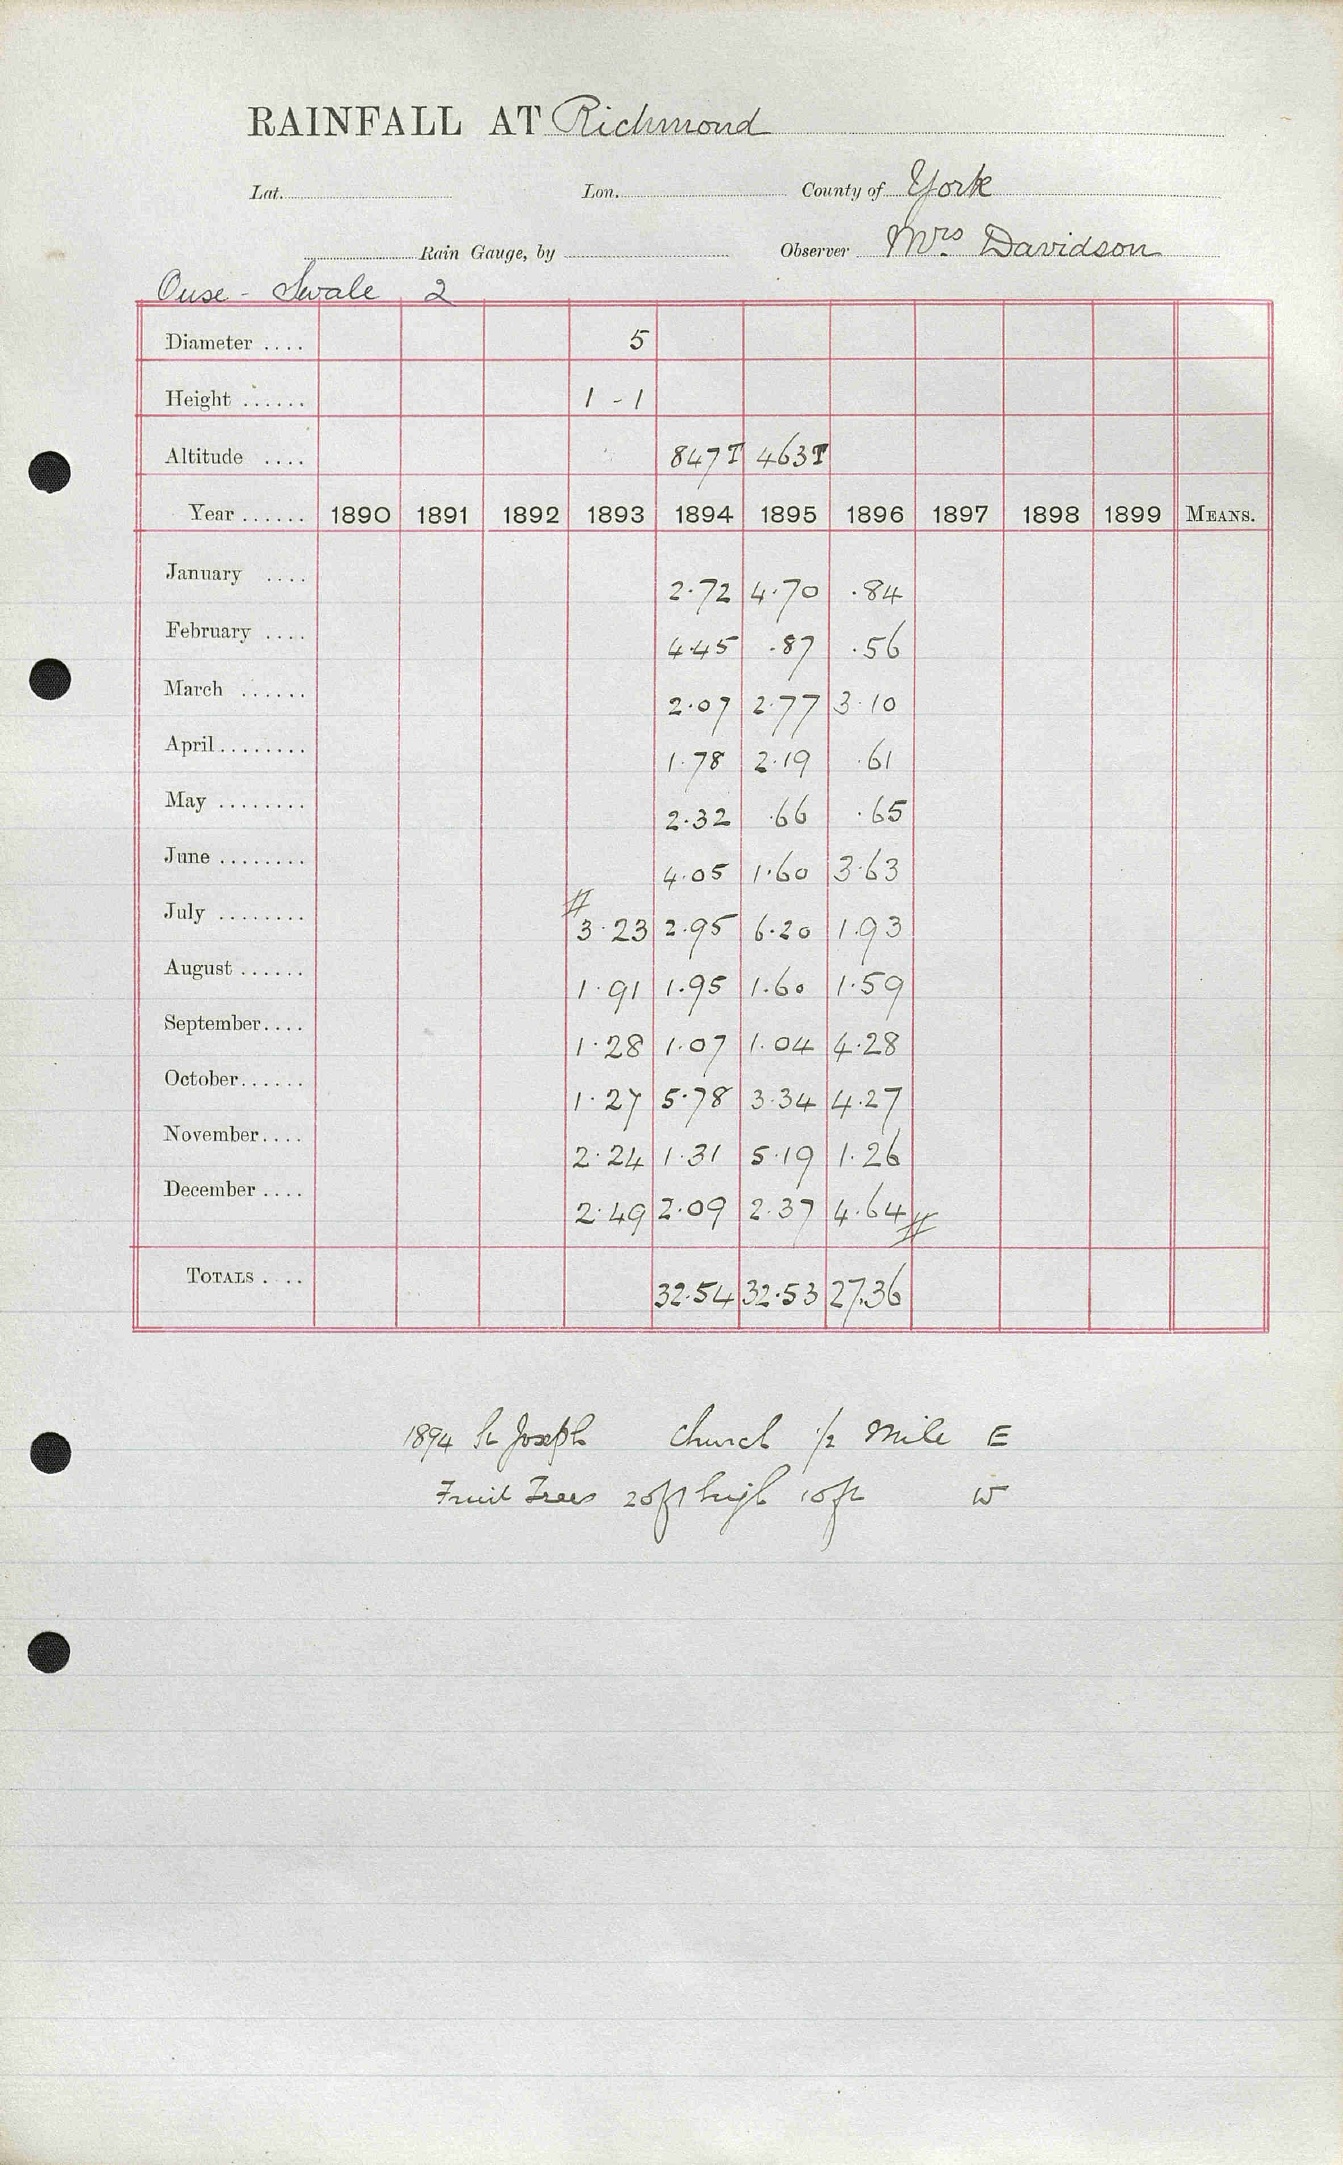 RAINFALL AT Richmond
Lat. Lon. County of York
Rain Gauge, by Observer Mrs. Davidson
Ouse - Swale 2
Diameter .... 5
Height ...... 1 - 1
Altitude .... 847T 463T
Year ...... 1890 1891 1892 1893 1894 1895 1896 1897 1898 1899 MEANS.
January .... 2.72 4.70 .84
February .... 4.45 .87 .56
March ...... 2.07 2.77 3.10
April ........ 1.78 2.19 .61
May ........ 2.32 .66 .65
June ........ 4.05 1.60 3.63
July ........ # 3.23 2.95 6.20 1.93
August ...... 1.91 1.95 1.60 1.59
September .... 1.28 1.07 1.04 4.28
October ...... 1.27 5.78 3.34 4.27
November .... 2.24 1.31 5.19 1.26
December .... 2.49 2.09 2.37 4.64 #
TOTALS .... 32.54 32.53 27.36
1894 St Joseph Church 1/2 Mile E
Fruit Trees 20ft high 10ft W